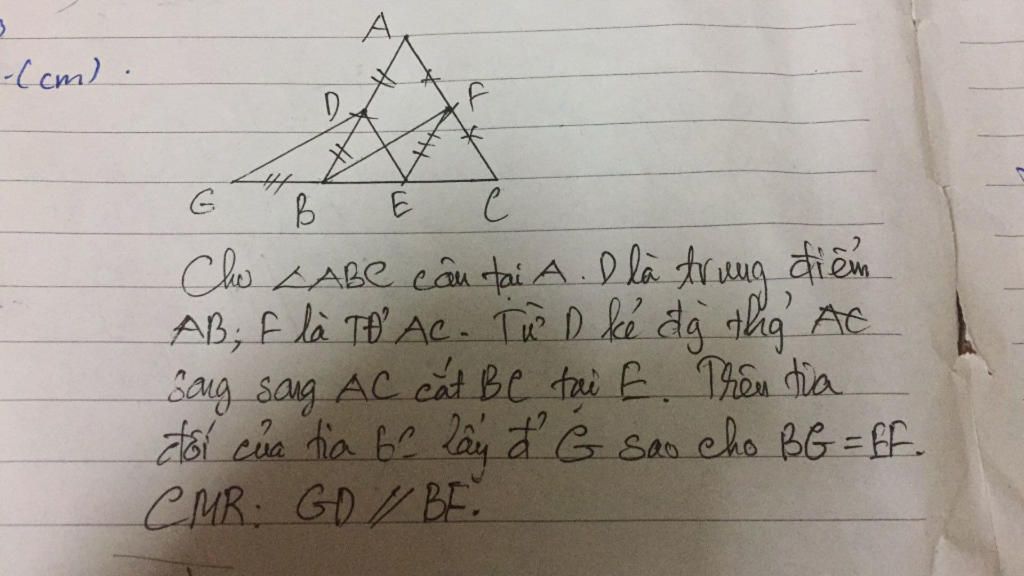 -(cm).
A
D
F
G
B
E
C
Cho ∠ABC cân tại A. D là trung điểm
AB; F là TĐ AC. Từ D kẻ đg thg AC
song song AC cắt BC tại E. Trên tia
đối của tia BC lấy đ' G sao cho BG = EF.
CMR: GD // BF.